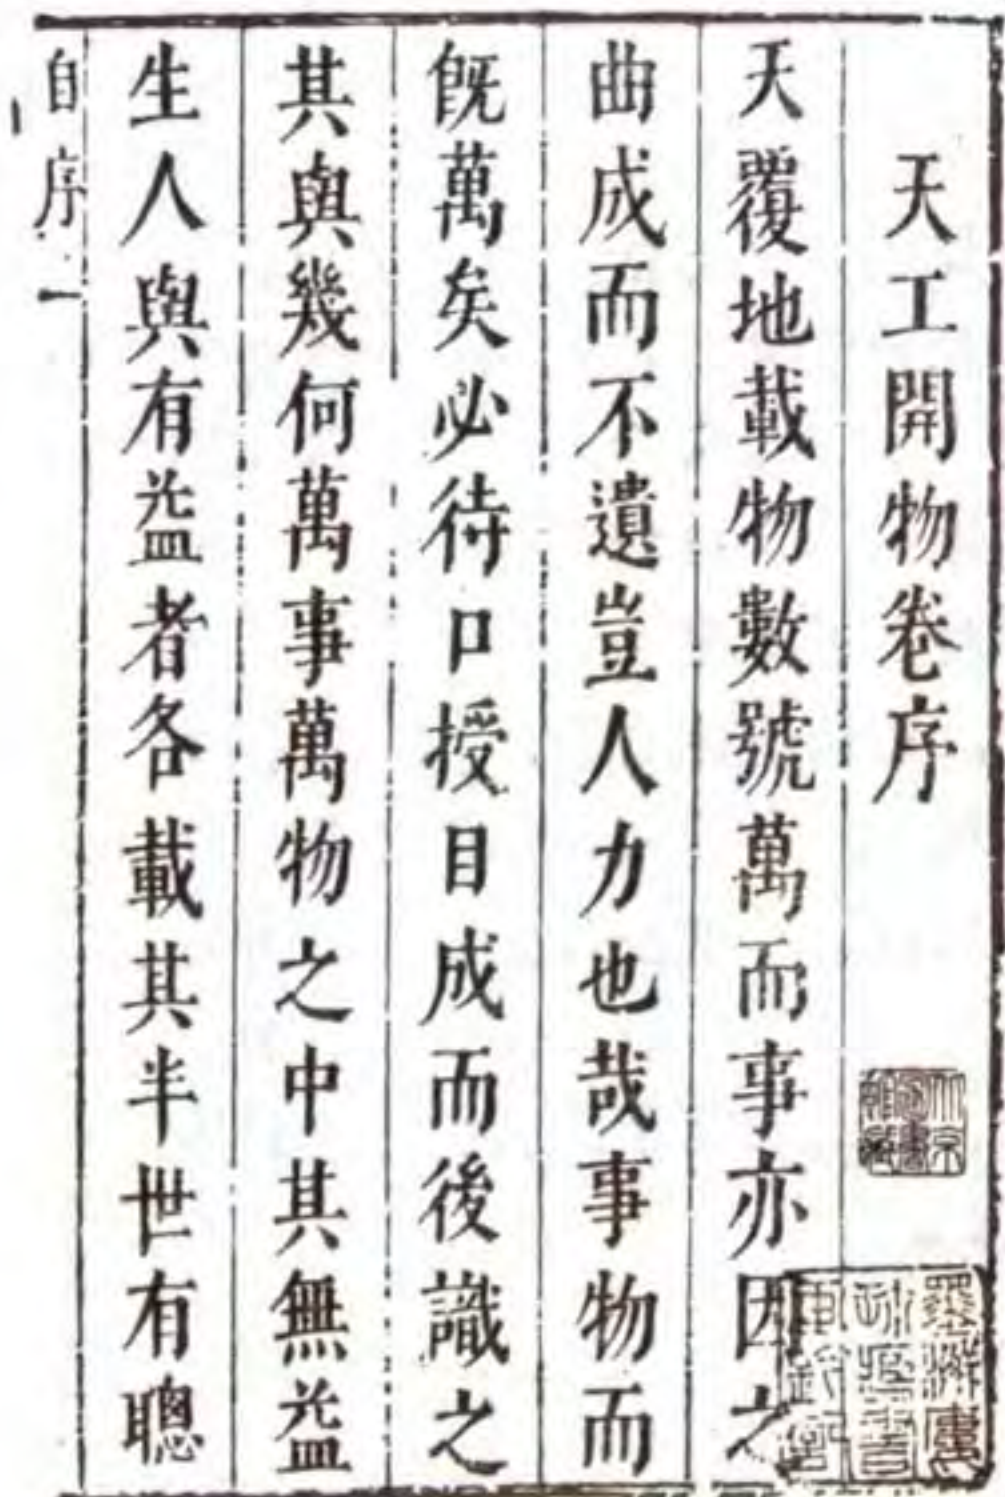 天工開物卷序
天覆地載物數號萬而事亦因之
曲成而不遺豈人力也哉事物而
旣萬矣必待口授目成而後識之
其與幾何萬事萬物之中其無益
生人與有益者各載其半世有聰
自序 一